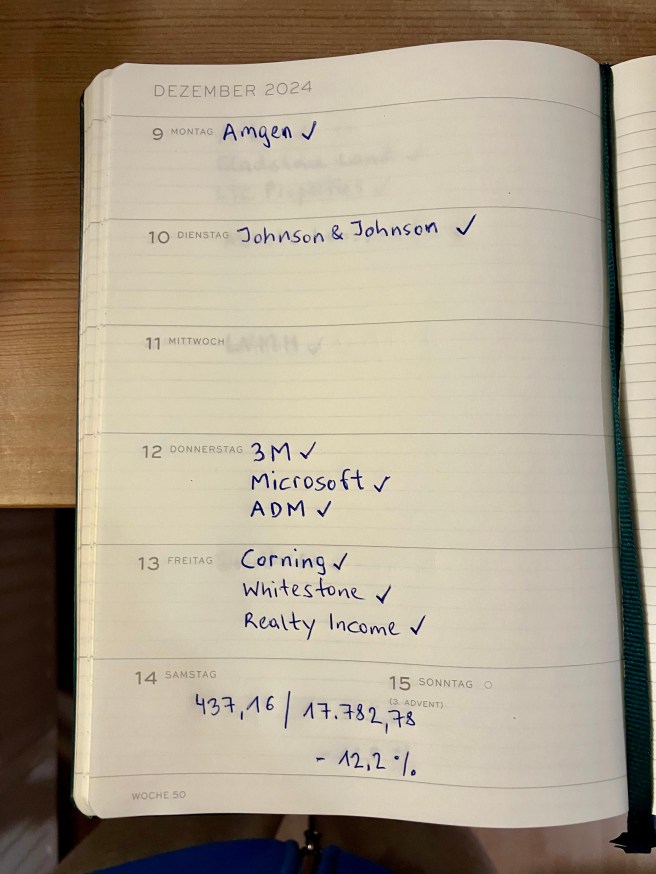 DEZEMBER 2024
9 MONTAG Amgen ✓
10 DIENSTAG Johnson & Johnson ✓
11 MITTWOCH
12 DONNERSTAG 3M ✓
Microsoft ✓
ADM ✓
13 FREITAG Corning ✓
Whitestone ✓
Realty Income ✓
14 SAMSTAG
15 SONNTAG
(3. ADVENT)
437,16 / 17.782,78
- 12,2 %
WOCHE 50